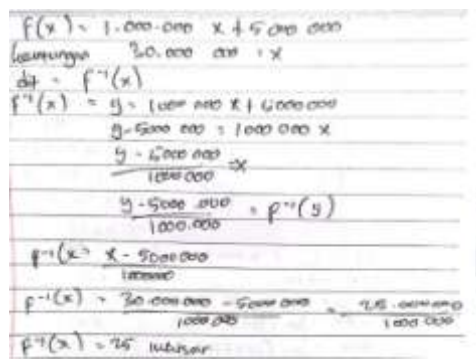 f(x) = 1.000.000 x + 5000 000
keuntungan 30.000 000 = x
dit = f⁻¹(x)
f⁻¹(x) = y = 1000 000 x + 5000000
y - 5000 000 = 1000 000 x
y - 5000 000 / 1000 000 = x
y - 5000 000 / 1000.000 = f⁻¹(y)
f⁻¹(x) = x - 5000000 / 1000000
f⁻¹(x) = 30.000 000 - 5000 000 / 1000 000 = 25.000 000 / 1000 000
f⁻¹(x) = 25